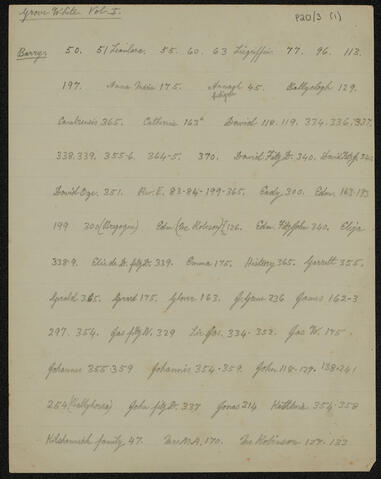 Grove White Vol. I.
P20/3 (1)
Barrys 50. 51 55. 60. 63 77. 96. 113.
197. Anna Maria 175. Annagh 45. Ballyclogh 129.
Cambrensis 365. Catherine 163 David 118. 119. 334. 336. 337.
338. 339. 355-6. 364-5. 370. David Fitz D. 340.
David Oge. 251. Rev. E. 83-84-199-365. Eady 300. Edm. 163-193
199 Edm 126. Edm. Fitz John 340. Eliza
338-9. Elis de D. fitz D. 339. Emma 175. History 365. Garrett 355.
Gerald 365. Gerard 175. Glover 163. 236 James 162-3
297. 354. Jas fitz N. 329 Sir Jas. 334-352. Jas W. 175.
Johannes 355-359 Johannis 354-359. John 118-129. 138-241
254 (Ballyhorea) John fitz D. 337 Jonas 214 Kathleen 354-358
family 47. Mrs M.A. 170. Mrs Robinson 127-133